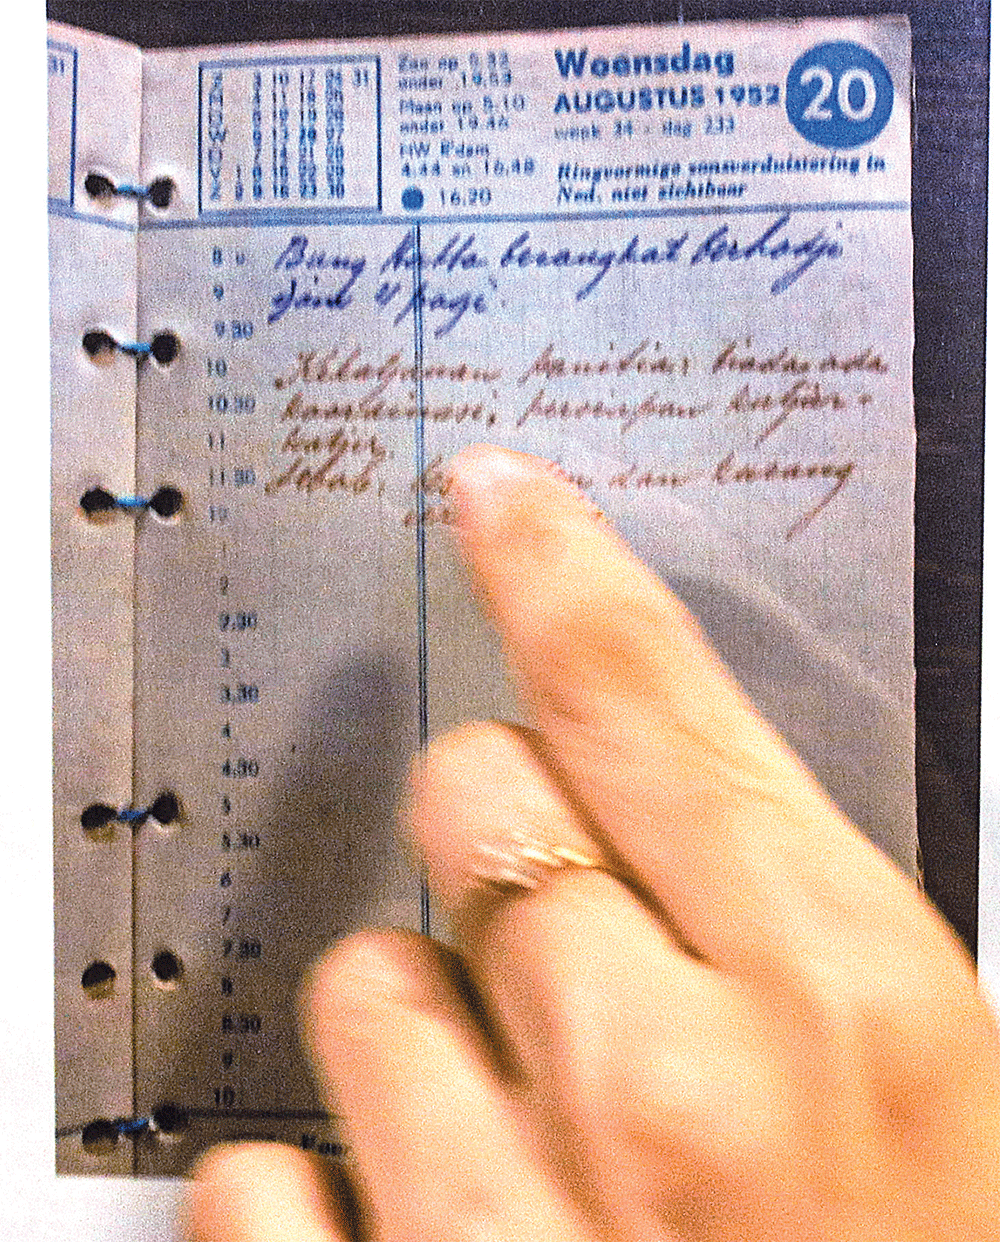 31
Z 3 10 17 24 31
M 4 11 18 25
D 5 12 19 26
W 6 13 20 27
D 7 14 21 28
V 1 8 15 22 29
Z 2 9 16 23 30
Zon op 5.33
onder 19.53
Maan op 5.10
onder 19.46
HW R'dam
4.44 en 16.48
16.20
Woensdag
AUGUSTUS 1952
20
week 34 - dag 233
Ringvormige zonsverduistering in
Ned. niet zichtbaar
8 u. Bung Hatta berangkat berhadji
9 djam 4 pagi.
9.30
10 panitia: tiada ada
10.30 koordinasi, persiapan katjau-
11 katjau
11.30 Sebab: dan karang
12
1
2
2.30
3
3.30
4
4.30
5
5.30
6
7
7.30
8
8.30
9
10